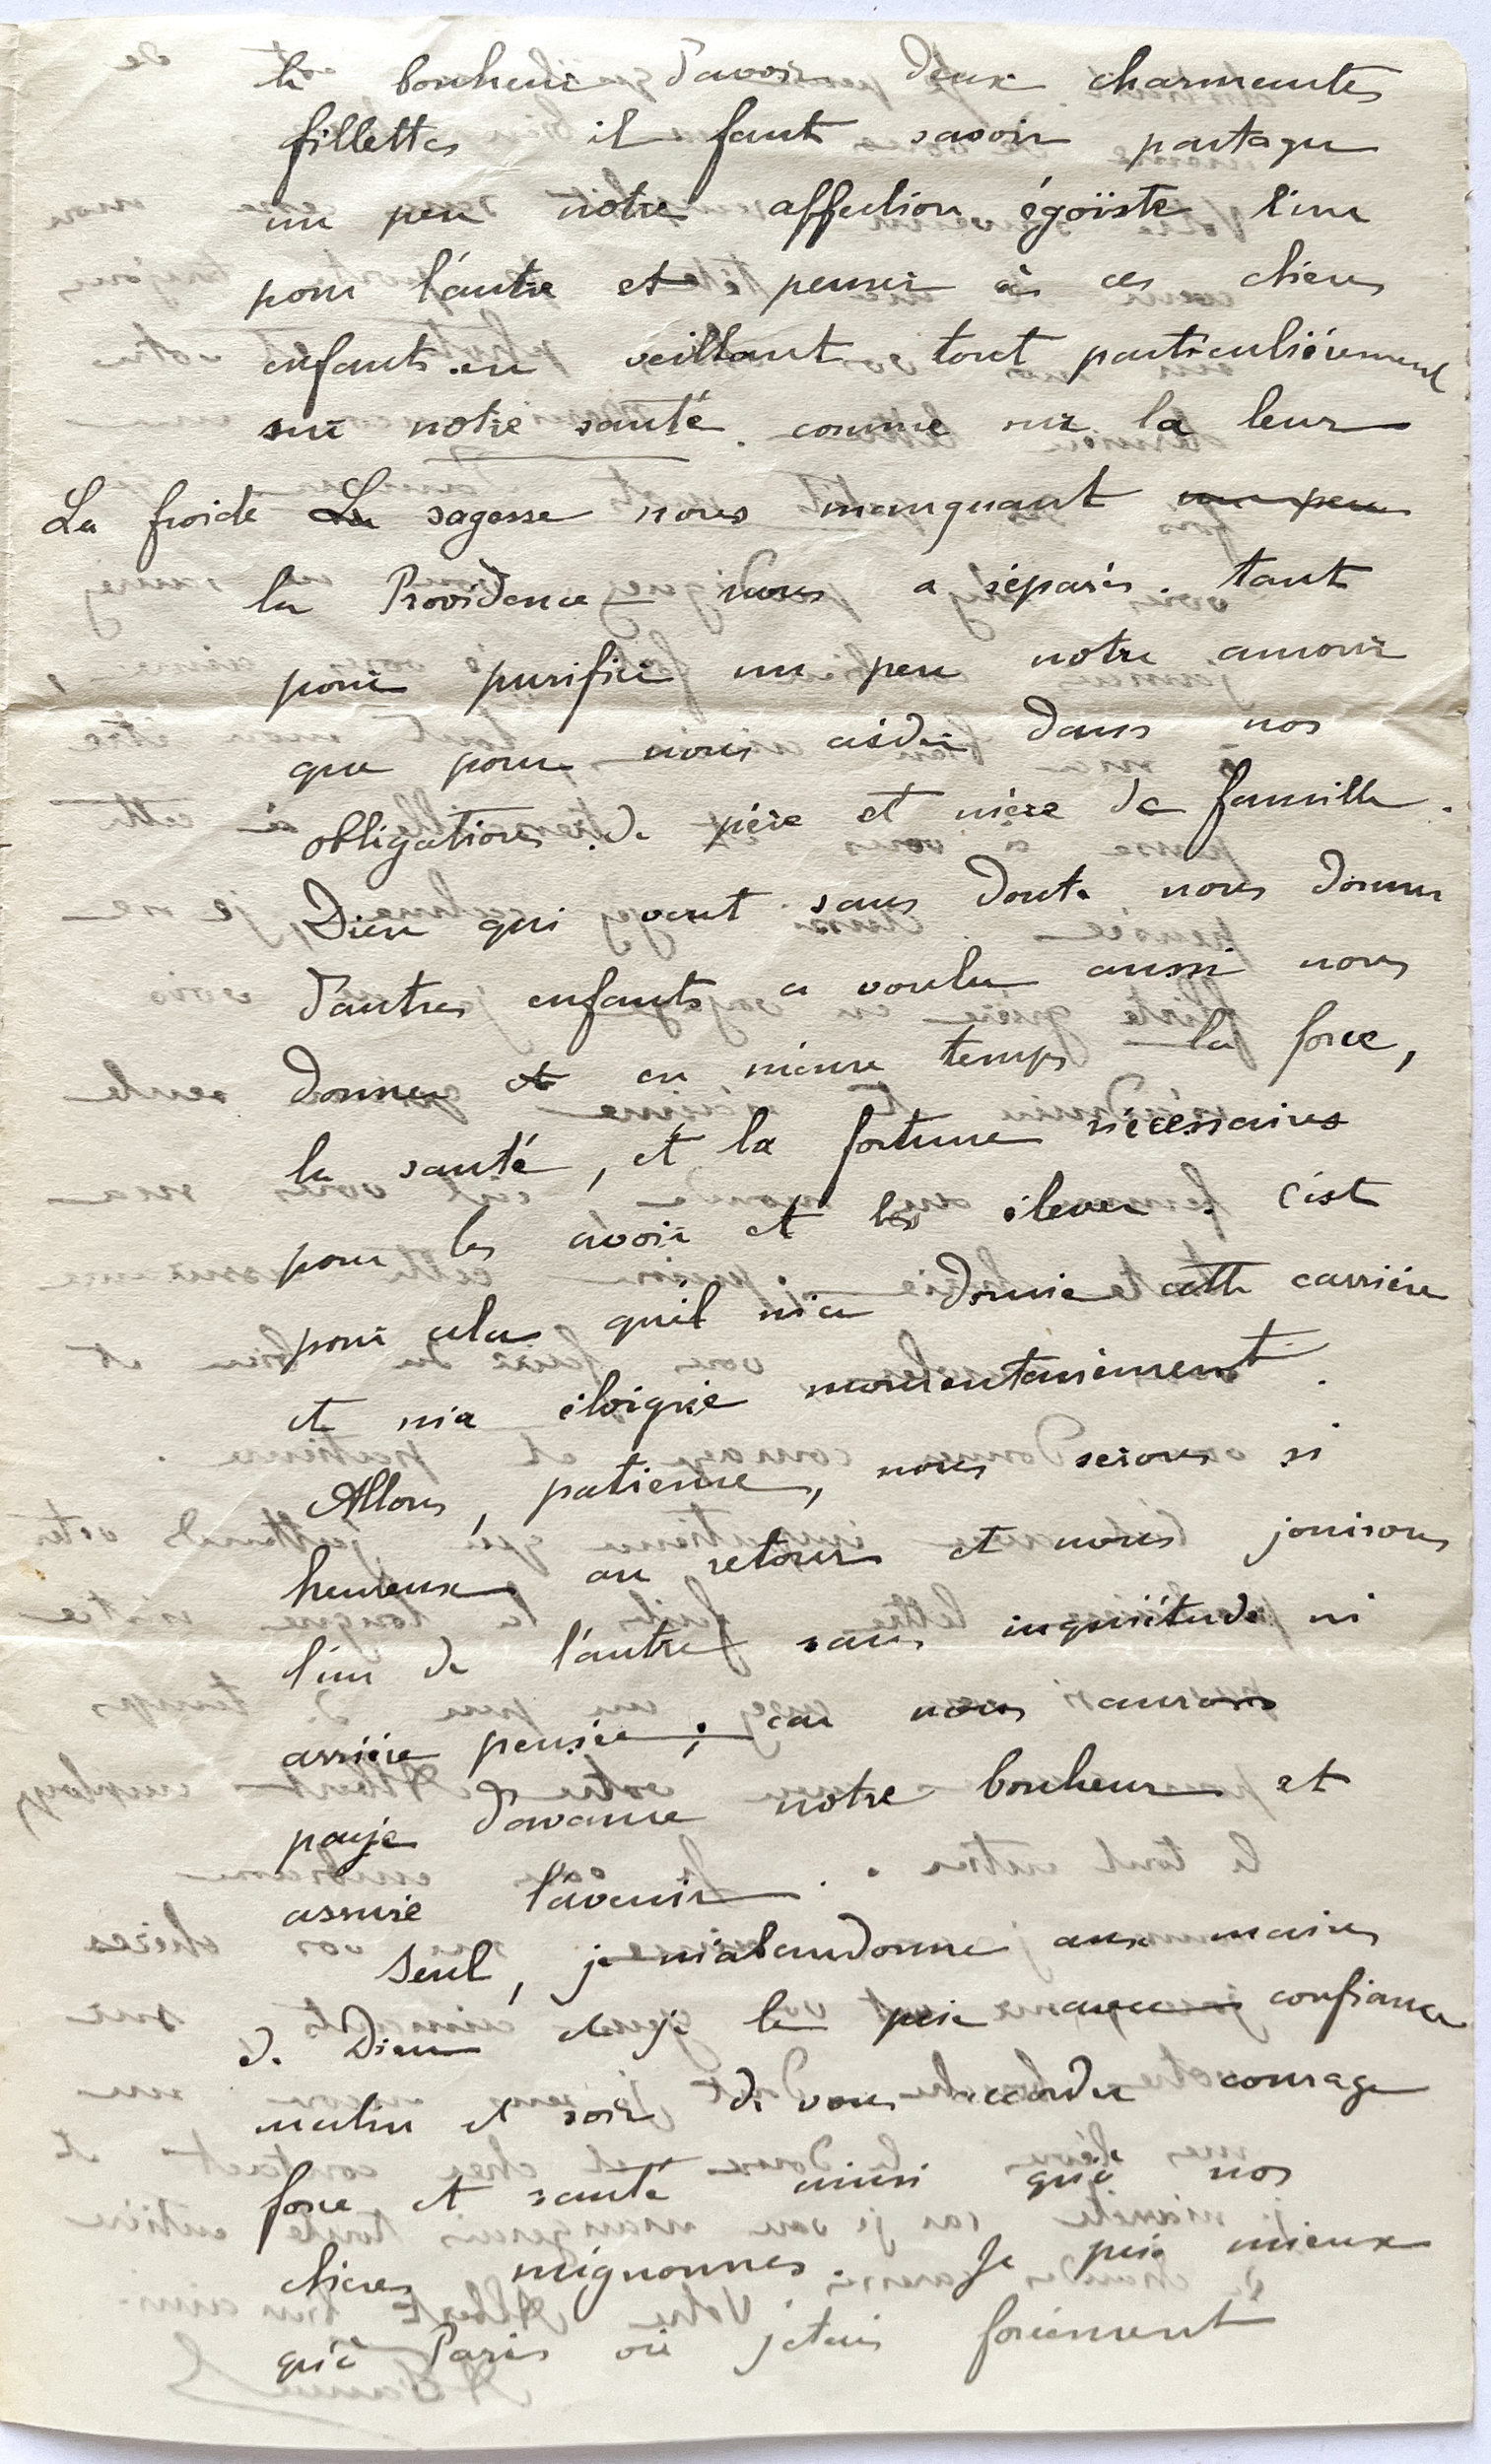 le bonheur d'avoir deux charmantes
fillettes il faut savoir partager
un peu notre affection égoïste l'une
pour l'autre et penser à ces chères
enfants en veillant tout particulièrement
sur notre santé comme sur la leur
La froide La sagesse nous manquant un peu
la Providence nous a séparés tant
pour purifier un peu notre amour
que pour nous aider dans nos
obligations de père et mère de famille.
Dieu qui veut sans doute nous donner
d'autres enfants a voulu aussi nous
donner et en même temps la force,
la santé, et la fortune nécessaires
pour les avoir et les élever. C'est
pour cela qu'il m'a donné cette carrière
et m'a éloigné momentanément.
Allons, patience, nous serons si
heureux au retour et nous jouirons
l'un de l'autre sans inquiétude ni
arrière pensée; car nous aurons
payé d'avance notre bonheur et
assuré l'avenir.
Seul, je m'abandonne aux mains
de Dieu et je le prie avec confiance
matin et soir de vous accorder courage
force et santé ainsi qu'à nos
chères mignonnes. Je prie mieux
qu'à Paris où j'étais forcément